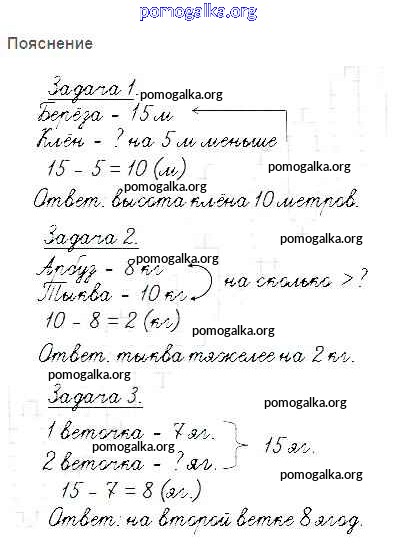 pomogalka.org
Пояснение
Задача 1.
pomogalka.org
Берёза - 15 м
Клён - ? на 5 м меньше
15 - 5 = 10 (м)
pomogalka.org
pomogalka.org
Ответ. высота клёна 10 метров.
Задача 2.
pomogalka.org
pomogalka.org
Арбуз - 8 кг
на сколько > ?
Тыква - 10 кг
10 - 8 = 2 (кг)
pomogalka.org
pomogalka.org
Ответ. тыква тяжелее на 2 кг.
pomogalka.org
Задача 3.
pomogalka.org
1 веточка - 7 яг.
15 яг.
pomogalka.org
2 веточка - ? яг.
pomogalka.org
15 - 7 = 8 (яг.)
Ответ: на второй ветке 8 ягод.